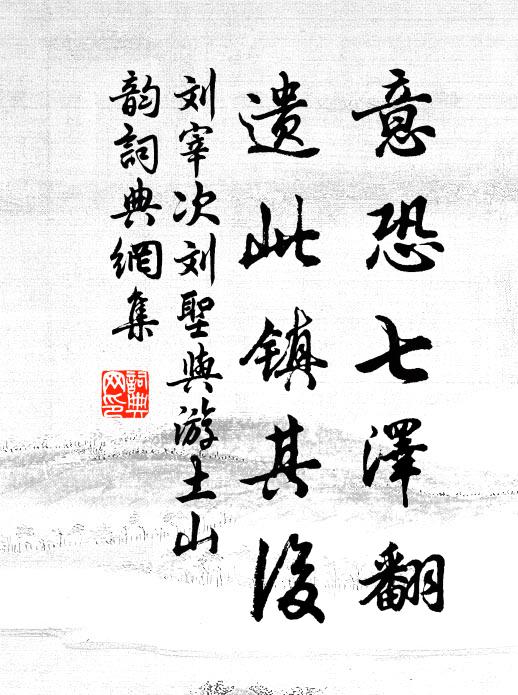 意恐七澤翻
遗此镇其後
刘宰次刘聖與游土山
韵詞典網集
詞典網印